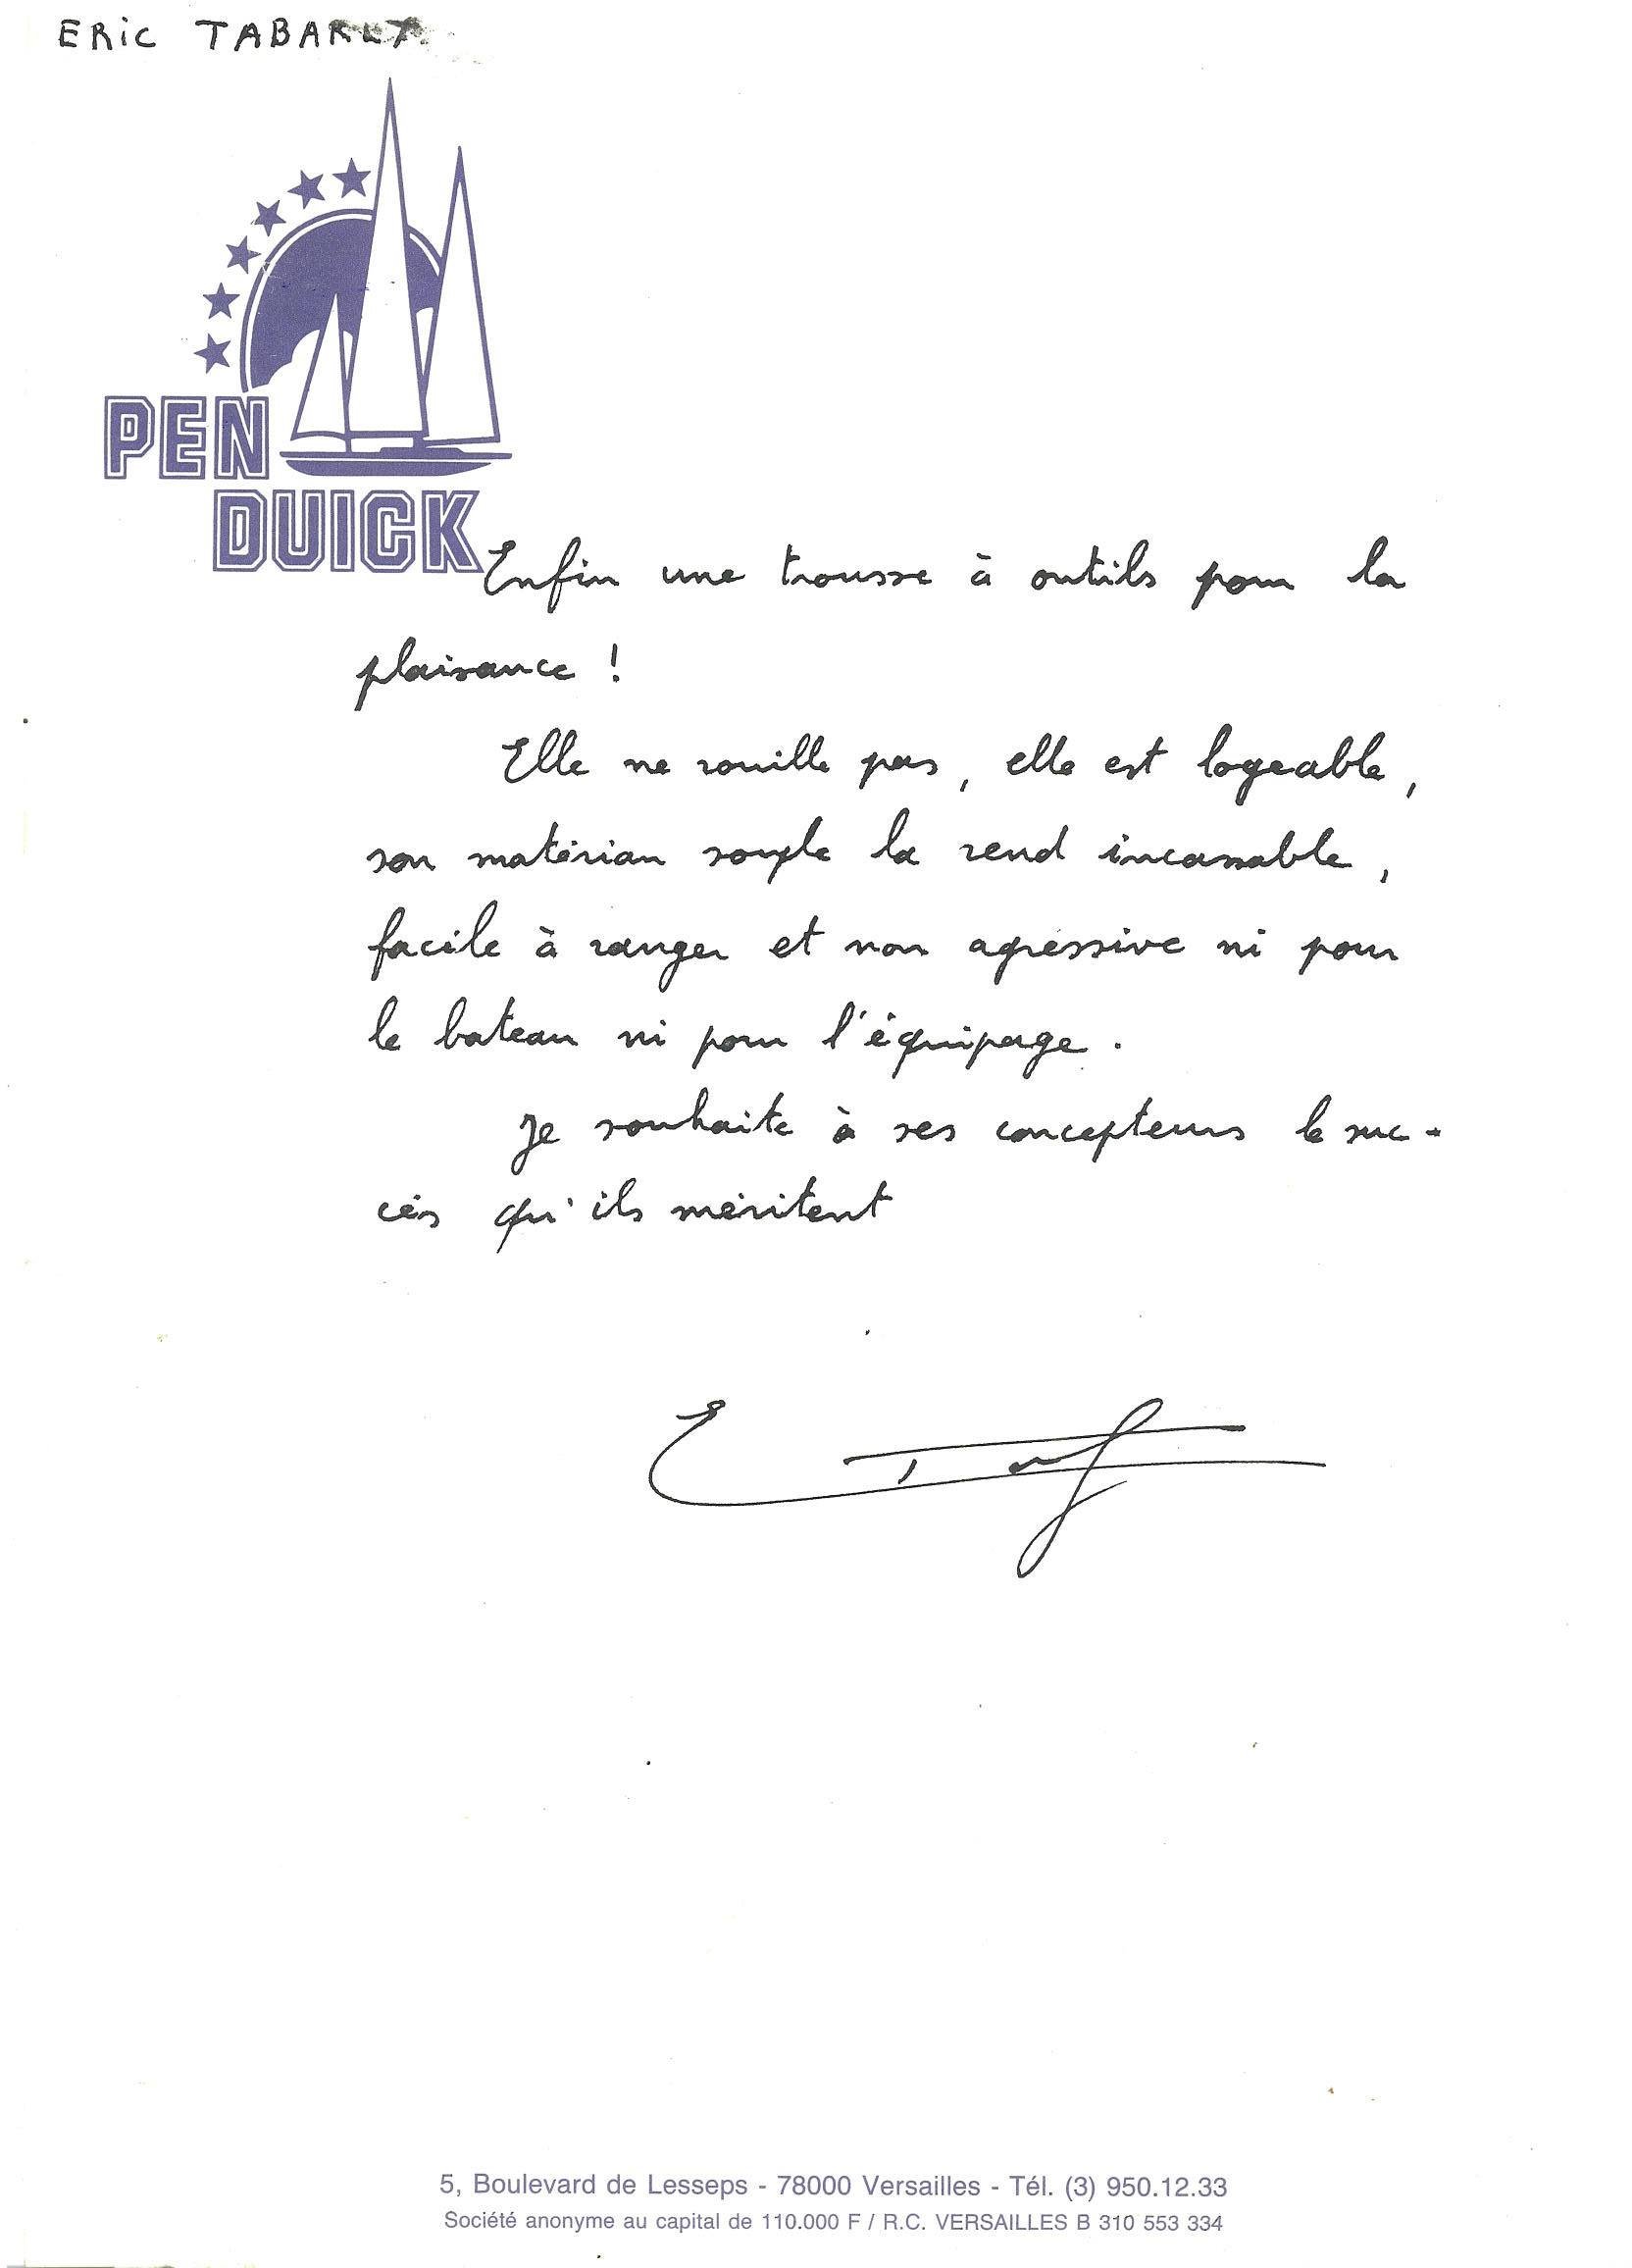 ERiC TABARLY
PEN
DUICK
Enfin une trousse à outils pour la
plaisance !
Elle ne rouille pas, elle est logeable,
son matériau souple la rend incassable,
facile à ranger et non agressive ni pour
le bateau ni pour l'équipage.
Je souhaite à ses concepteurs le suc-
cès qu'ils méritent
5, Boulevard de Lesseps - 78000 Versailles - Tél. (3) 950.12.33
Société anonyme au capital de 110.000 F / R.C. VERSAILLES B 310 553 334